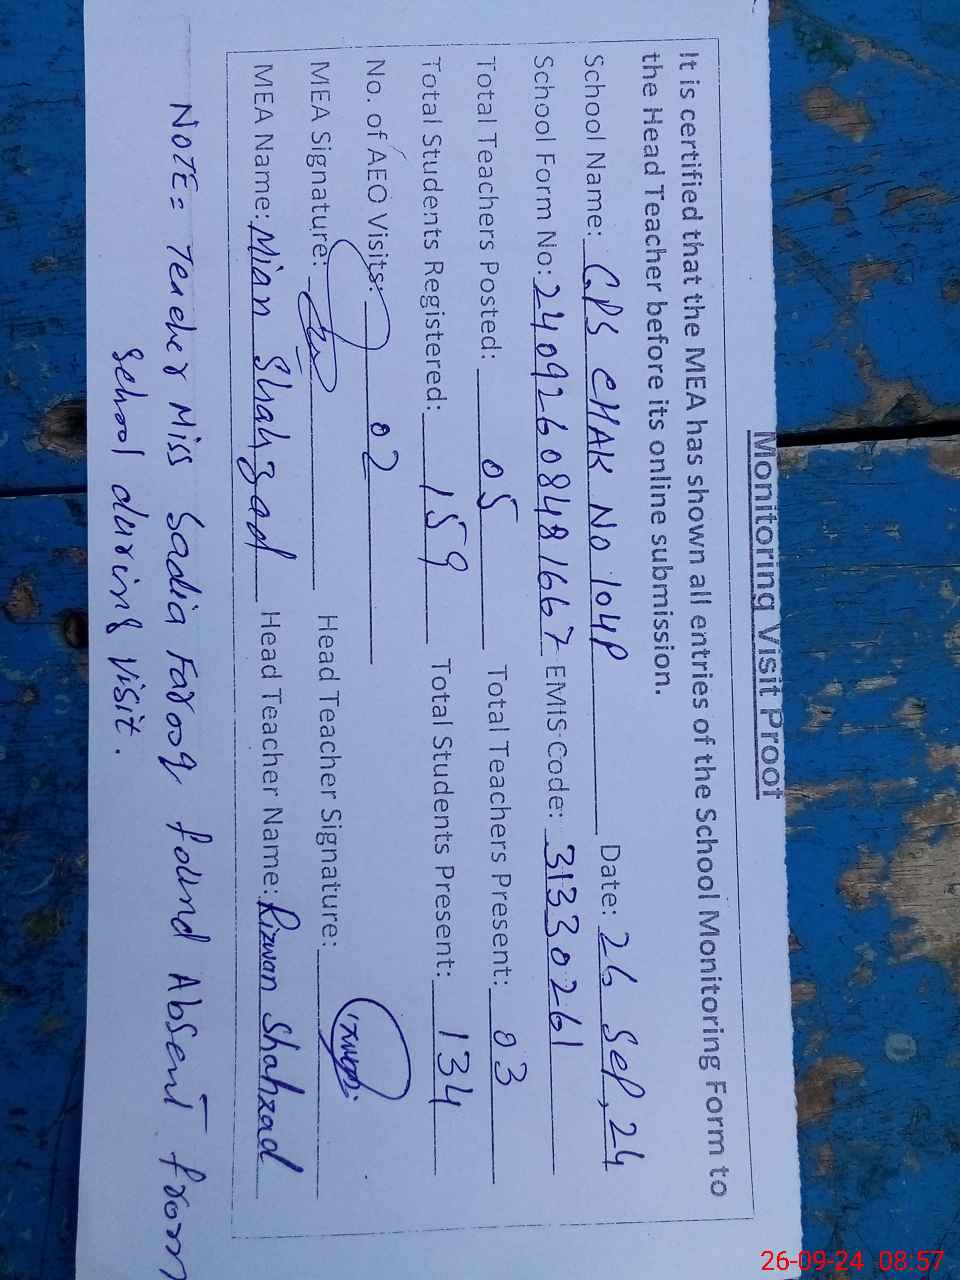 Monitoring Visit Proof
It is certified that the MEA has shown all entries of the School Monitoring Form to
the Head Teacher before its online submission.
School Name: GPS CHAK No 104P Date: 26 Sep, 24
School Form No: 2409260848 1667 EMIS Code: 31330261
Total Teachers Posted: 05 Total Teachers Present: 03
Total Students Registered: 159 Total Students Present: 134
No. of AEO Visits: 02
MEA Signature: Head Teacher Signature:
MEA Name: Mian Shahzad Head Teacher Name: Rizwan Shahzad
NOTE= Teacher Miss Sadia Farooq found Absent from
school during visit.
26-09-24 08:57